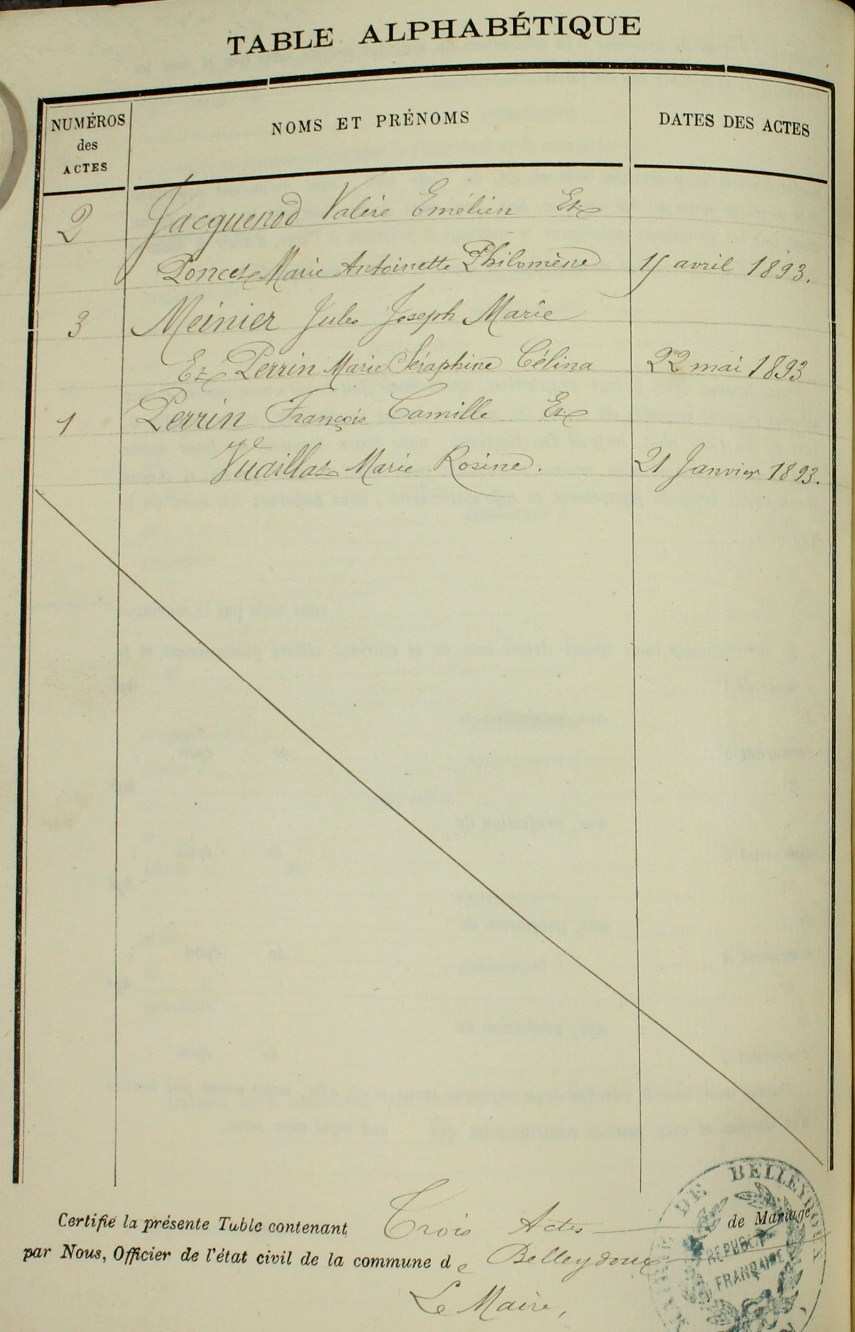 TABLE ALPHABÉTIQUE
NUMÉROS des ACTES NOMS ET PRÉNOMS DATES DES ACTES
2 Jacquenod Valère Emélien Et
Poncet Marie Antoinette Philomène 15 avril 1893.
3 Meinier Jules Joseph Marie
Et Perrin Marie Séraphine Célina 22 mai 1893
1 Perrin François Camille Et
Vuaillat Marie Rosine. 21 Janvier 1893.
Certifié la présente Table contenant Trois Actes de Mariage
par Nous, Officier de l'état civil de la commune de Belleydoux
Le Maire,
DE BELLEYDOUX
RÉPUBLIQUE
FRANÇAISE